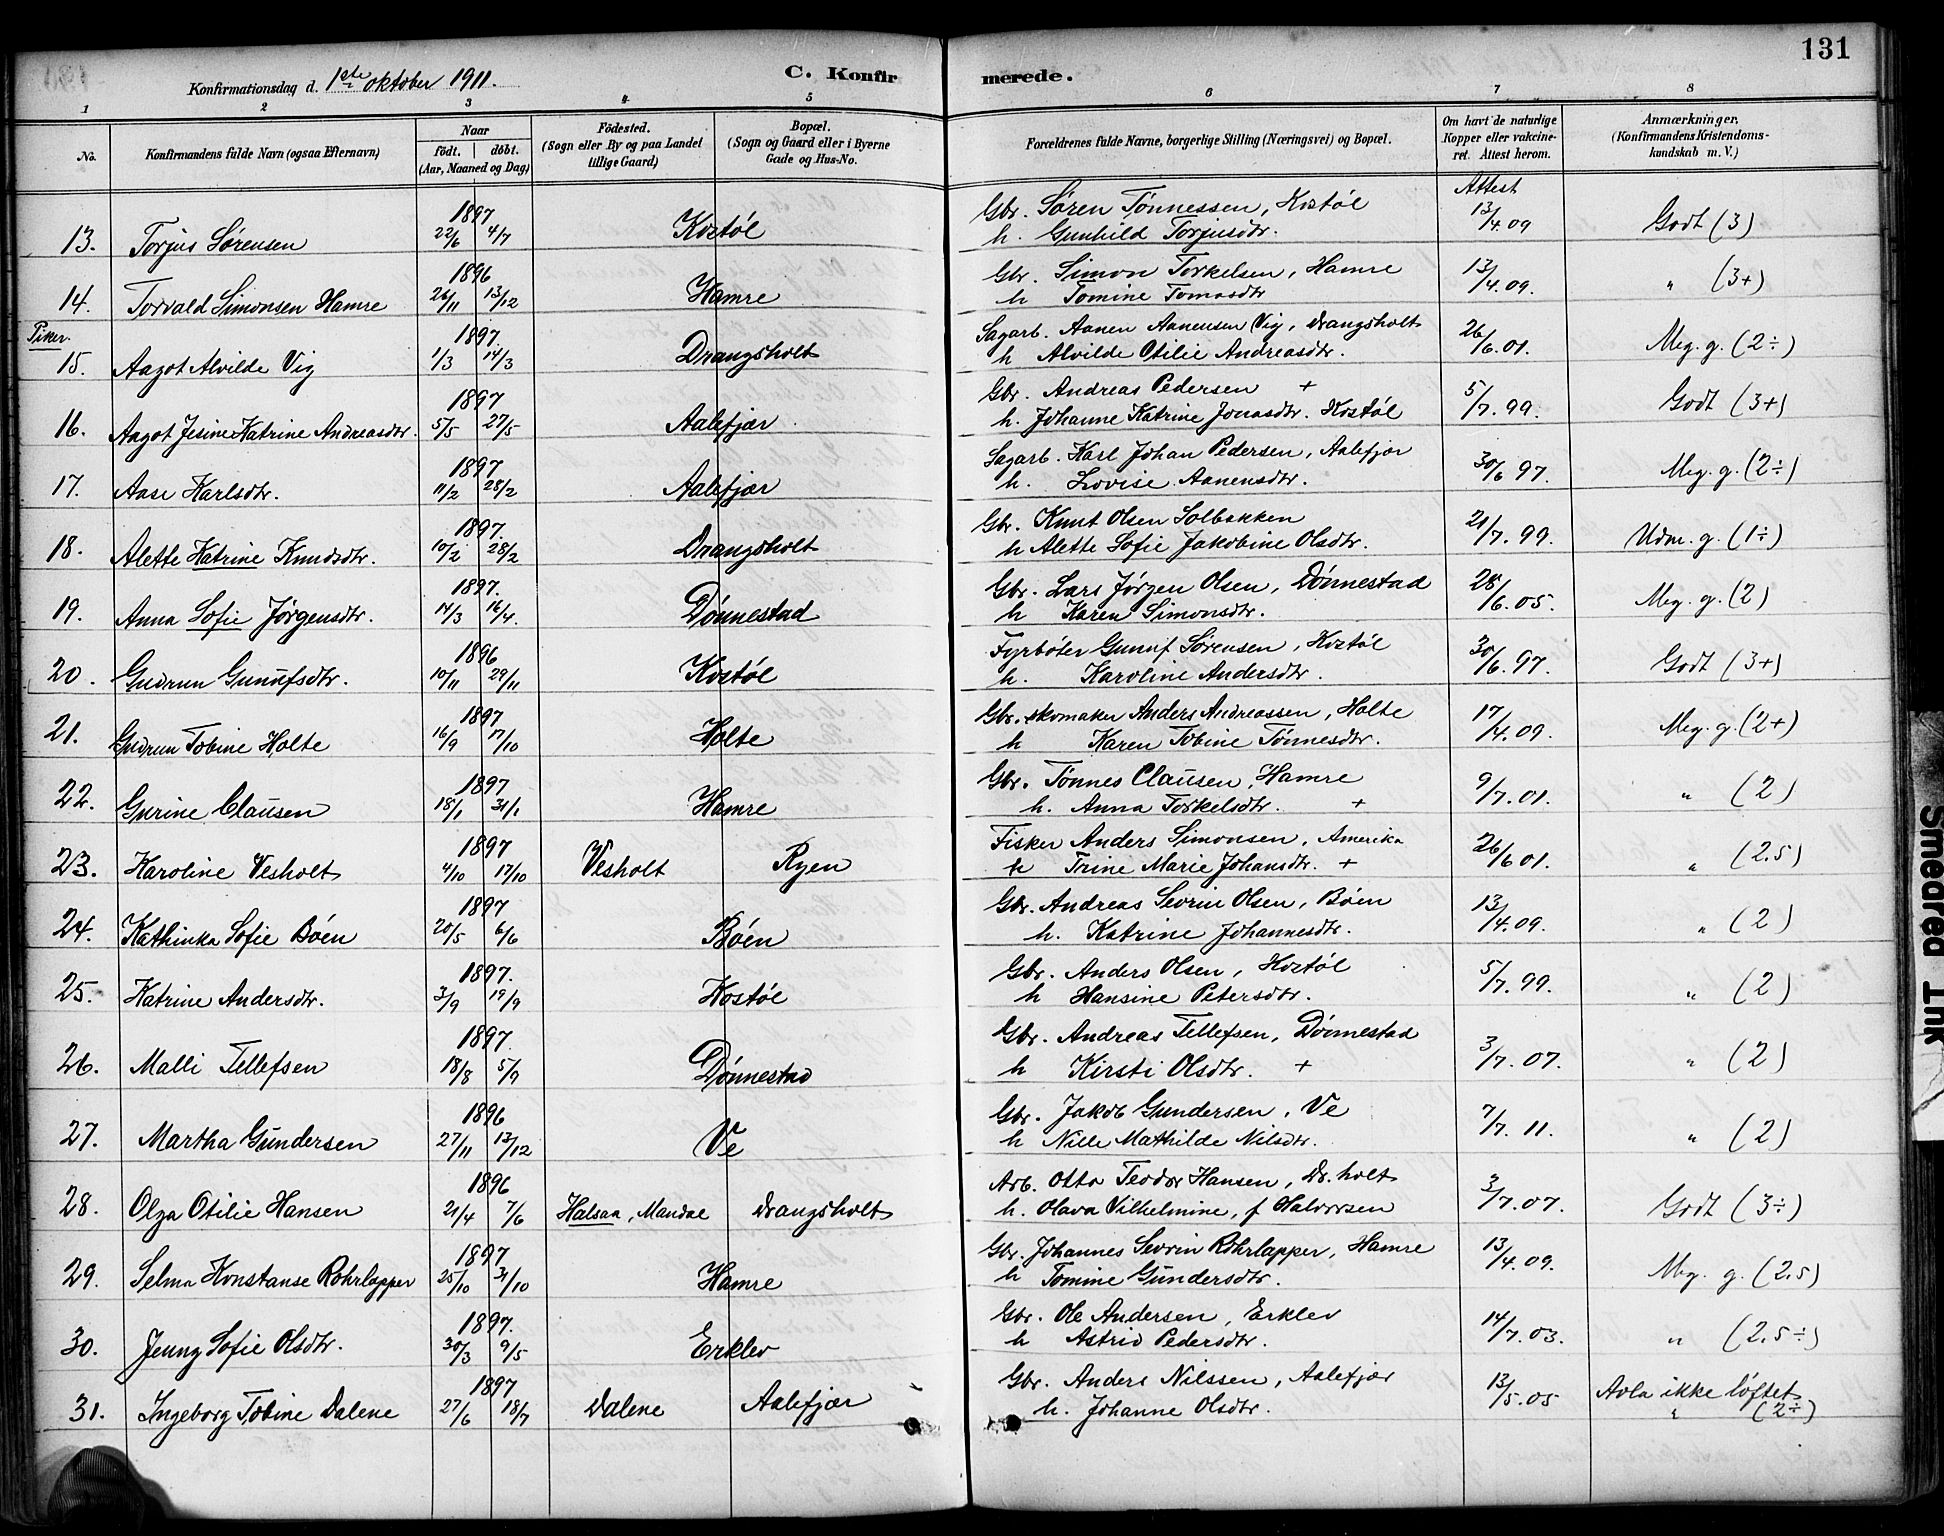 131
Konfirmationsdag d. 1ste oktober 1911.
C. Konfirmerede.
1 2 3 4 5 6 7 8
No. Konfirmandens fulde Navn (ogsaa Efternavn) Naar født. døbt. (Aar, Maaned og Dag) Fødested. (Sogn eller By og paa Landet tillige Gaard) Bopæl. (Sogn og Gaard eller i Byerne Gade og Hus-No. Forældrenes fulde Navne, borgerlige Stilling (Næringsvei) og Bopæl. Om havt de naturlige Kopper eller vakcineret. Attest herom. Anmærkninger. (Konfirmandens Kristendomskundskab m. V.)
Attest
13. Torjus Sørensen 1897 22/6 4/7 Kostøl Gbr. Søren Tønnessen, Kostøl 13/4.09 Godt (3)
h. Gunhild Torjusdtr.
14. Torvald Simonsen Hamre 1896 26/11 13/12 Hamre Gbr. Simon Torkelsen, Hamre 13/4.09. " (3+)
h Tomine Tomasdtr
Piker.
15. Aagot Alvilde Vig 1897. 1/3 14/3 Drangsholt Sagarb. Aanen Aanensen Vig, Drangsholt 26/6.01. Meg. g. (2÷)
h Alvilde Otilie Andreasdtr.
16. Aagot Jesine Katrine Andreasdtr. 1897 5/5 27/5 Aalefjær Gbr. Andreas Pedersen + 5/7.99. Godt (3+)
h. Johanne Katrine Jonasdtr. Kostøl
17. Aase Karlsdtr. 1897 11/2 28/2 Aalefjær Sagarb. Karl Johan Pedersen, Aalefjær 30/6 97. Meg. g. (2÷)
h. Lovise Aanensdtr.
18. Alette Katrine Knudsdtr. 1897. 10/2 28/2 Drangsholt Gbr. Knut Olsen Solbakken 21/7.99. Udm. g. (1÷)
h Alette Sofie Jakobine Olsdtr.
19. Anna Sofie Jørgensdtr. 1897. 14/3 16/4. Dønnestad Gbr. Lars Jørgen Olsen, Dønnestad 28/6.05. Meg. g. (2)
h Karen Simonsdtr.
20. Gudrun Gunufsdtr. 1896 10/11 29/11 Kostøl Fyrbøter Gunuf Sørensen, Kostøl 30/6.97. Godt (3+)
h. Karoline Andersdtr.
21. Gudrun Tobine Holte 1897 16/9 17/10 Holte Gbr. skomaker Anders Andreassen, Holte 17/4.09. Meg. g. (2+)
h Karen Tobine Tønnesdtr.
22. Gurine Clausen 1897 18/1 31/1 Hamre Gbr. Tønnes Clausen, Hamre 9/7.01. " (2)
h. Anna Torkelsdtr. +
23. Karoline Vesholt 1897 4/10 17/10 Vesholt Ryen Fisker Anders Simonsen, Amerika 26/6 01. " (2.5)
h Trine Marie Johansdtr. +
24. Kathinka Sofie Bøen 1897 20/5 6/6 Bøen Gbr. Andreas Sevrin Olsen, Bøen 13/4.09. " (2)
h. Katrine Johannesdtr.
25. Katrine Andersdtr. 1897. 3/9 19/9 Kostøl Gbr. Anders Olsen, Kostøl 5/7.99. " (2)
h Hansine Petersdtr.
26. Malli Tellefsen 1897. 18/8 5/9 Dønnestad Gbr. Andreas Tellefsen, Dønnestad 3/7.07. " (2)
h Kirsti Olsdtr. +
27. Martha Gundersen 1896 27/11 13/12 Ve Gbr. Jakob Gundersen, Ve 7/7.11. " (2)
h Nille Mathilde Nilsdtr.
28. Olga Otilie Hansen 1896 21/4 7/6 Halsaa, Mandal Drangsholt Arb. Otto Teodor Hansen, Dr.holt 3/7.07. Godt (3÷)
h. Olava Vilhelmine, f Halvorsen
29. Selma Konstanse Rohrlapper 1897 25/10 31/10 Hamre Gbr. Johannes Sevrin Rohrlapper, Hamre 13/4.09. Meg. g. (2,5)
h Tomine Gundersdtr.
30. Jenny Sofie Olsdtr. 1897. 30/3 9/5 Erklev Gbr. Ole Andersen, Erklev 14/7.03. " (2.5÷)
h Astrid Pedersdtr.
31. Ingeborg Tobine Dalene 1897 27/6 18/7 Dalene Aalefjær Gbr. Anders Nilssen, Aalefjær 13/5.05 Avla ikke løftet
h. Johanne Olsdtr. " (2÷)
Smeared Ink